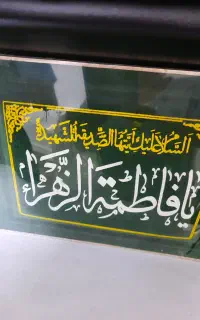 السلام عليك أيتها الصديقة الشهيدة
يا فاطمة الزهراء